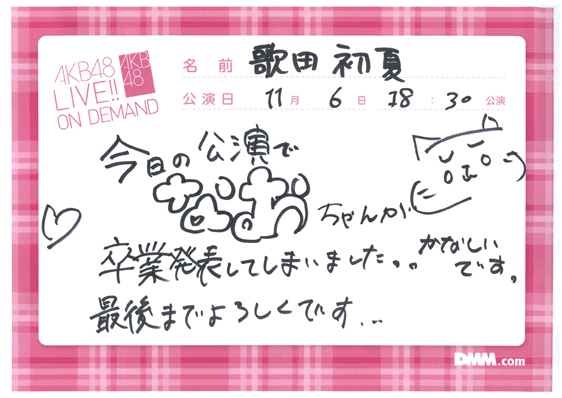 AKB48
LIVE!!
ON DEMAND
AKB
48
名前 歌田 初夏
公演日 11月 6日 18:30 公演
今日の公演で
なお ちゃんが
卒業発表してしまいました。。かなしい
です。
最後までよろしくです...
DMM.com